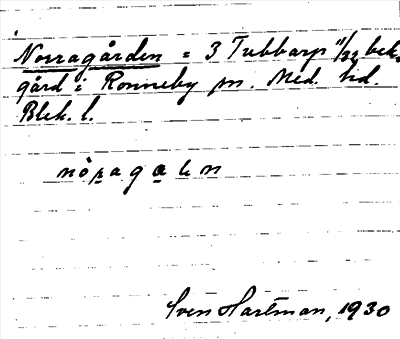 Norragården = 3 Tubbarp 11/32 bek.
gård i Ronneby sn. Med. hd.
Blek. l.
Sven Hartman, 1930